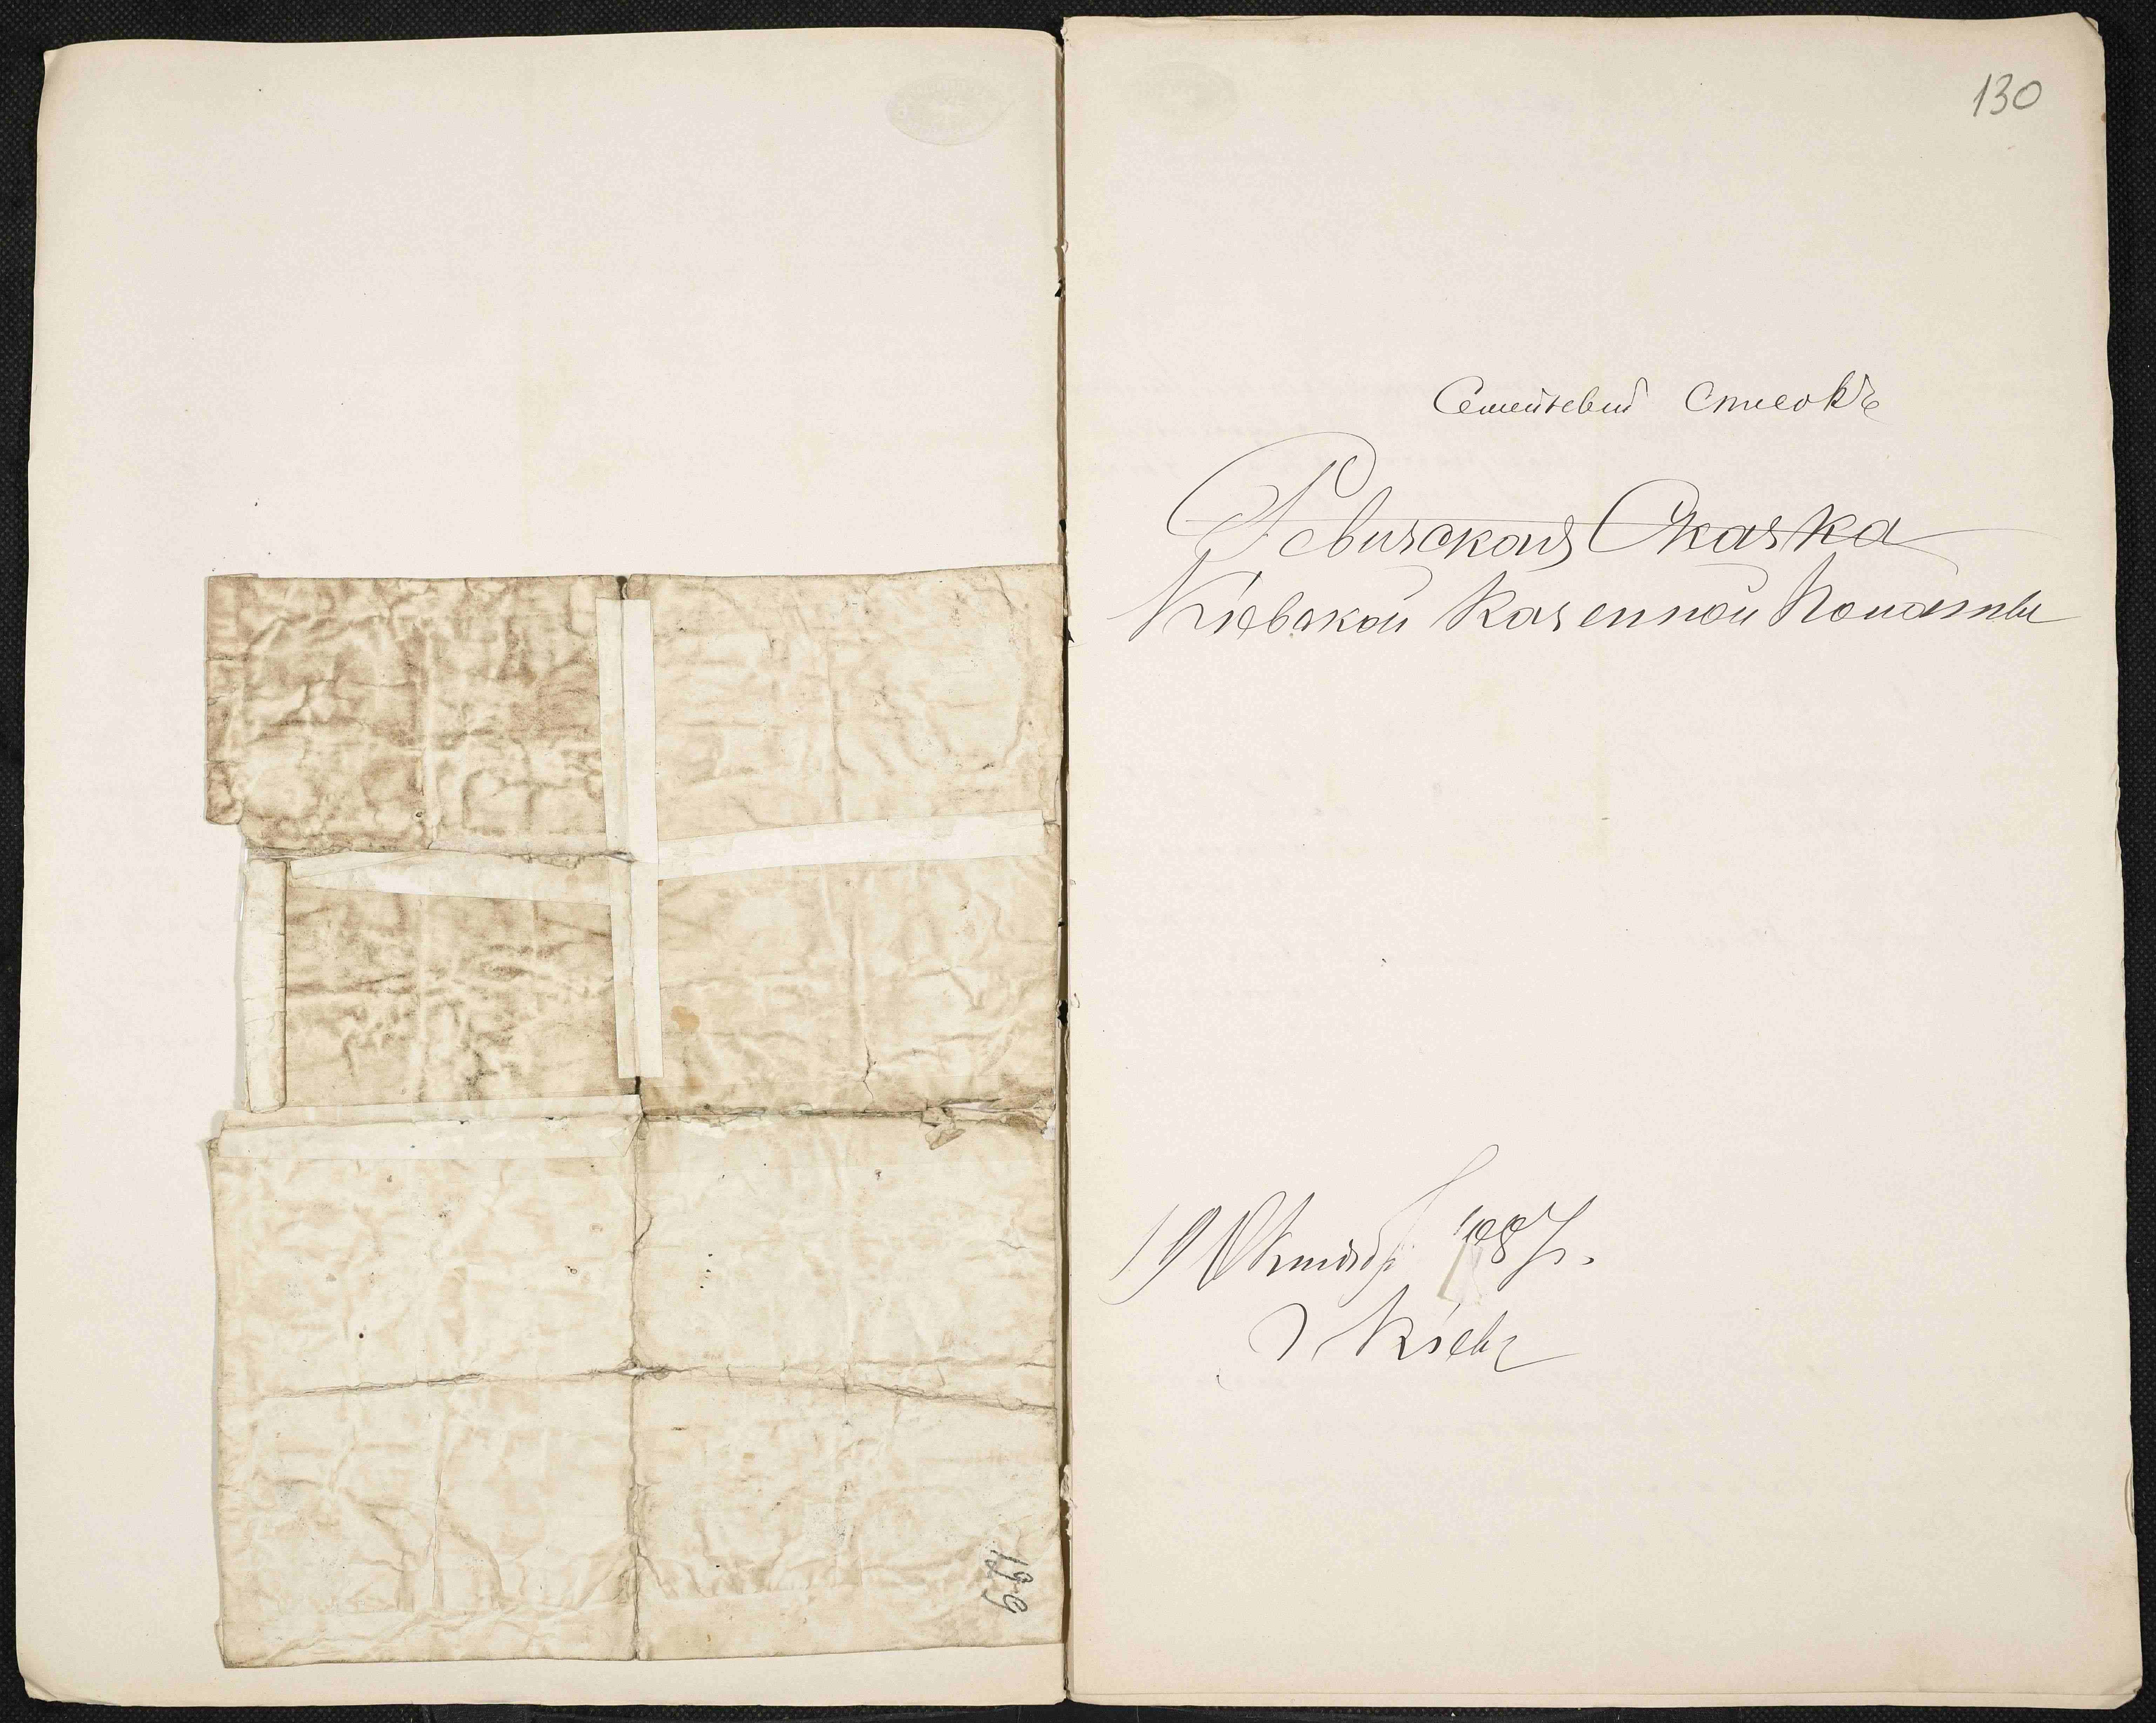 129
130
Семейный Списокъ
Ревизская Сказка
Кіевской Казенной Полаты
19 Октября 1887 г.
г. Кіевъ